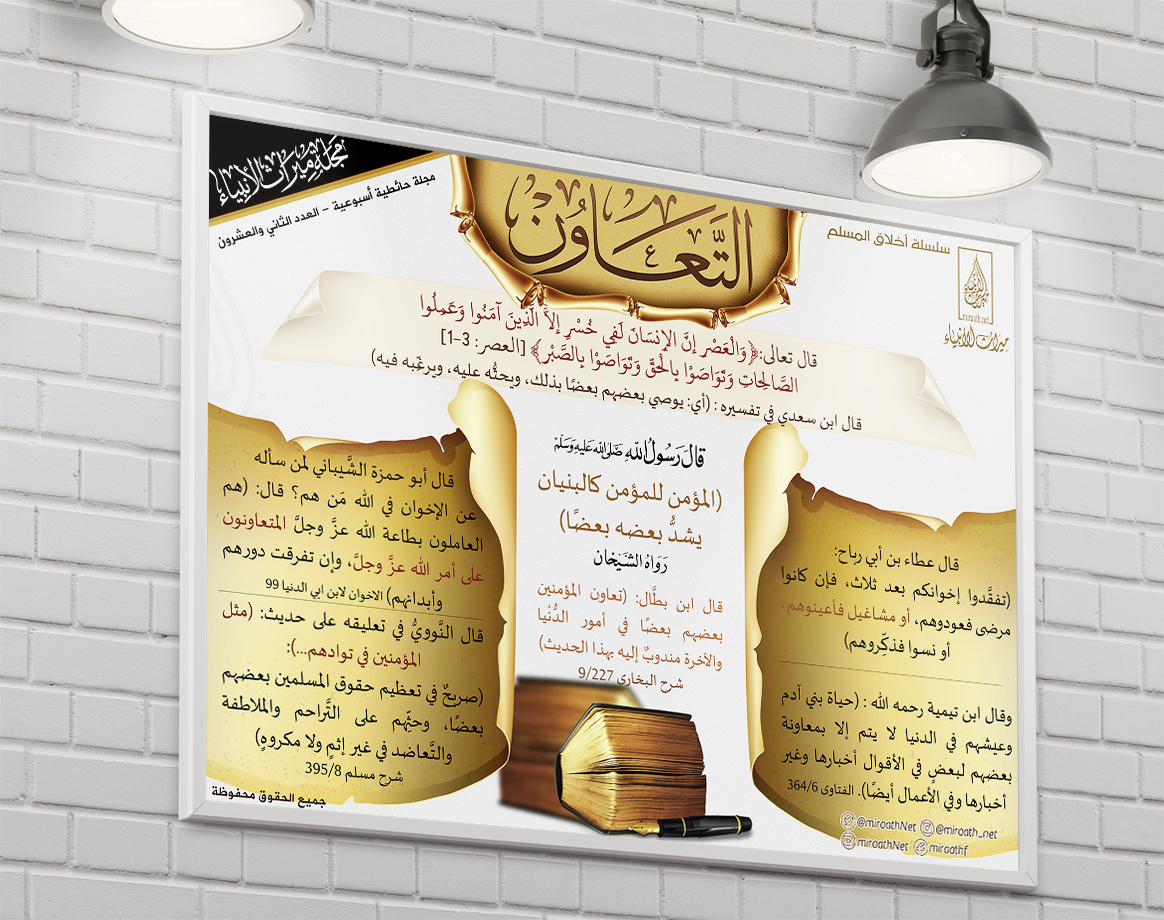 مجلة ميراث الأنبياء
مجلة حائطية أسبوعية – العدد الثاني والعشرون
التَّعَاوُنْ
سلسلة أخلاق المسلم
miraath.net
ميراث الأنبياء
قال تعالى:﴿وَالْعَصْرِ إِنَّ الإِنسَانَ لَفِي خُسْرٍ إِلاَّ الَّذِينَ آمَنُوا وَعَمِلُوا
الصَّالِحَاتِ وَتَوَاصَوْا بِالْحَقِّ وَتَوَاصَوْا بِالصَّبْرِ﴾ [العصر: 3-1]
قال ابن سعدي في تفسيره : (أي: يوصي بعضهم بعضًا بذلك، ويحثُّه عليه، ويرغِّبه فيه)
قال عطاء بن أبي رباح:
(تفقَّدوا إخوانكم بعد ثلاث، فإن كانوا
مرضى فعودوهم، أو مشاغيل فأعينوهم،
أو نسوا فذكِّروهم)
وقال ابن تيمية رحمه الله : (حياة بني آدم
وعيشهم في الدنيا لا يتم إلا بمعاونة
بعضهم لبعضٍ في الأقوال أخبارها وغير
أخبارها وفي الأعمال أيضًا). الفتاوى 364/6
قَالَ رَسُولُ اللهِ صَلَّى اللهُ عَلَيْهِ وَسَلَّمَ
(المؤمن للمؤمن كالبنيان
يشدُّ بعضه بعضًا)
رَوَاهُ الشَّيْخَان
قال ابن بطَّال: (تعاون المؤمنين
بعضهم بعضًا في أمور الدُّنْيا
والآخرة مندوبٌ إليه بهذا الحديث)
شرح البخاري 9/227
قال أبو حمزة الشَّيباني لمن سأله
عن الإخوان في الله مَن هم؟ قال: (هم
العاملون بطاعة الله عزَّ وجلَّ المتعاونون
على أمر الله عزَّ وجلَّ، وإن تفرقت دورهم
وأبدانهم) الاخوان لابن ابي الدنيا 99
قال النَّوويُّ في تعليقه على حديث: (مثل
المؤمنين في توادهم...):
(صريحٌ في تعظيم حقوق المسلمين بعضهم
بعضًا، وحثِّهم على التَّراحم والملاطفة
والتَّعاضد في غير إثمٍ ولا مكروهٍ)
شرح مسلم 395/8
جميع الحقوق محفوظة
@miraathNet @miraath_net
miraathNet miraathf